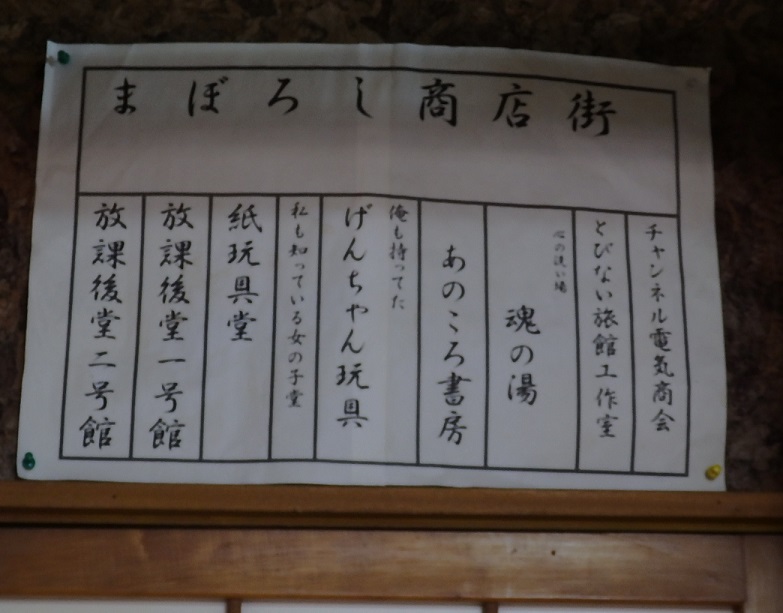 まぼろし商店街
チャンネル電気商会
とびない旅館工作室
心の洗い場
魂の湯
あのころ書房
俺も持ってた
げんちゃん玩具
私も知っている女の子堂
紙玩具堂
放課後堂一号館
放課後堂二号館